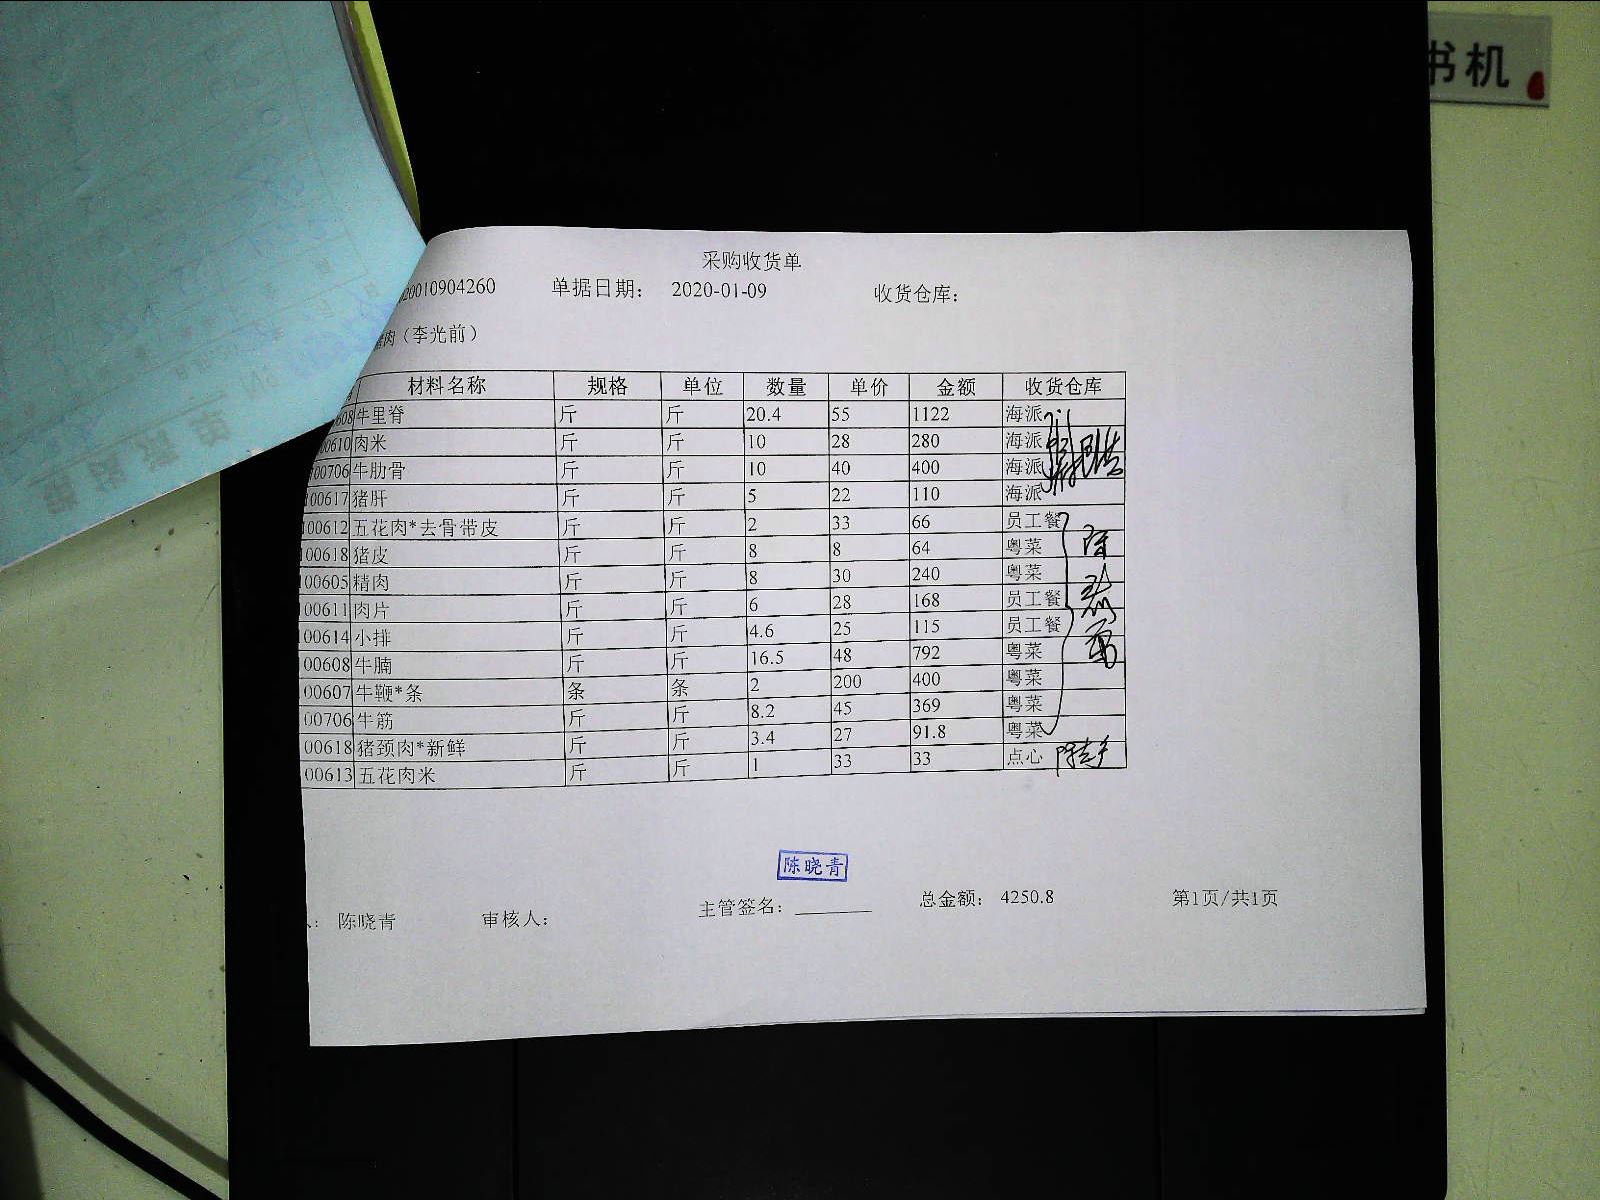 书机
采购收货单
20010904260 单据日期： 2020-01-09 收货仓库：
肉（李光前）
材料名称 规格 单位 数量 单价 金额 收货仓库
608 牛里脊 斤 斤 20.4 55 1122 海派
00610 肉米 斤 斤 10 28 280 海派
00706 牛肋骨 斤 斤 10 40 400 海派
100617 猪肝 斤 斤 5 22 110 海派
100612 五花肉*去骨带皮 斤 斤 2 33 66 员工餐
100618 猪皮 斤 斤 8 8 64 粤菜
100605 精肉 斤 斤 8 30 240 粤菜
100611 肉片 斤 斤 6 28 168 员工餐
00614 小排 斤 斤 4.6 25 115 员工餐
00608 牛腩 斤 斤 16.5 48 792 粤菜
00607 牛鞭*条 条 条 2 200 400 粤菜
00706 牛筋 斤 斤 8.2 45 369 粤菜
00618 猪颈肉*新鲜 斤 斤 3.4 27 91.8 粤菜
00613 五花肉米 斤 斤 1 33 33 点心
陈晓青
人： 陈晓青 审核人： 主管签名： 总金额： 4250.8 第1页/共1页